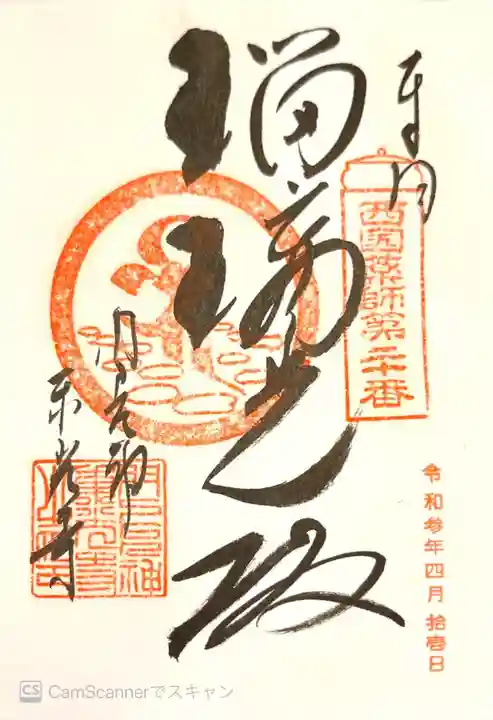 奉拝
西国薬師第二十番
瑠璃光殿
門戸厄神
東光寺
令和参年四月拾壱日
CS CamScannerでスキャン